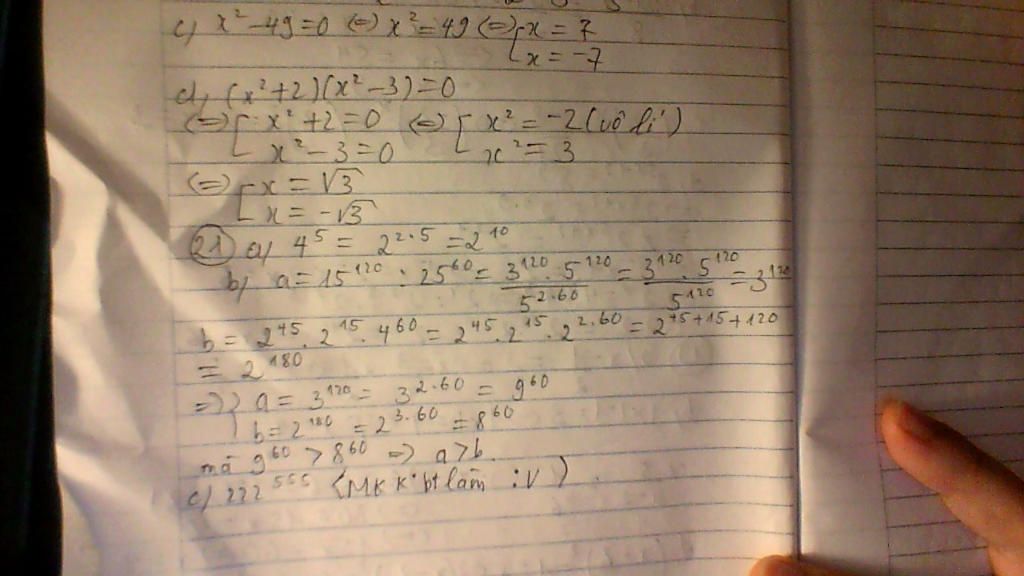 c) x² - 49 = 0 ⇔ x² = 49 ⇔ [x = 7
[x = -7
d) (x² + 2)(x² - 3) = 0
⇔ [x² + 2 = 0 ⇔ [x² = -2 (vô lí)
[x² - 3 = 0 [x² = 3
⇔ [x = √3
[x = -√3
21 a) 4⁵ = 2^{2.5} = 2^{10}
b) a = 15^{120} : 25^{60} = \frac{3^{120} . 5^{120}}{5^{2.60}} = \frac{3^{120} . 5^{120}}{5^{120}} = 3^{120}
b = 2^{45} . 2^{15} . 4^{60} = 2^{45} . 2^{15} . 2^{2.60} = 2^{45+15+120}
= 2^{180}
⇒ } a = 3^{120} = 3^{2.60} = 9^{60}
b = 2^{180} = 2^{3.60} = 8^{60}
mà 9^{60} > 8^{60} ⇒ a > b.
c) 222^{555} (MK K bt làm :V)